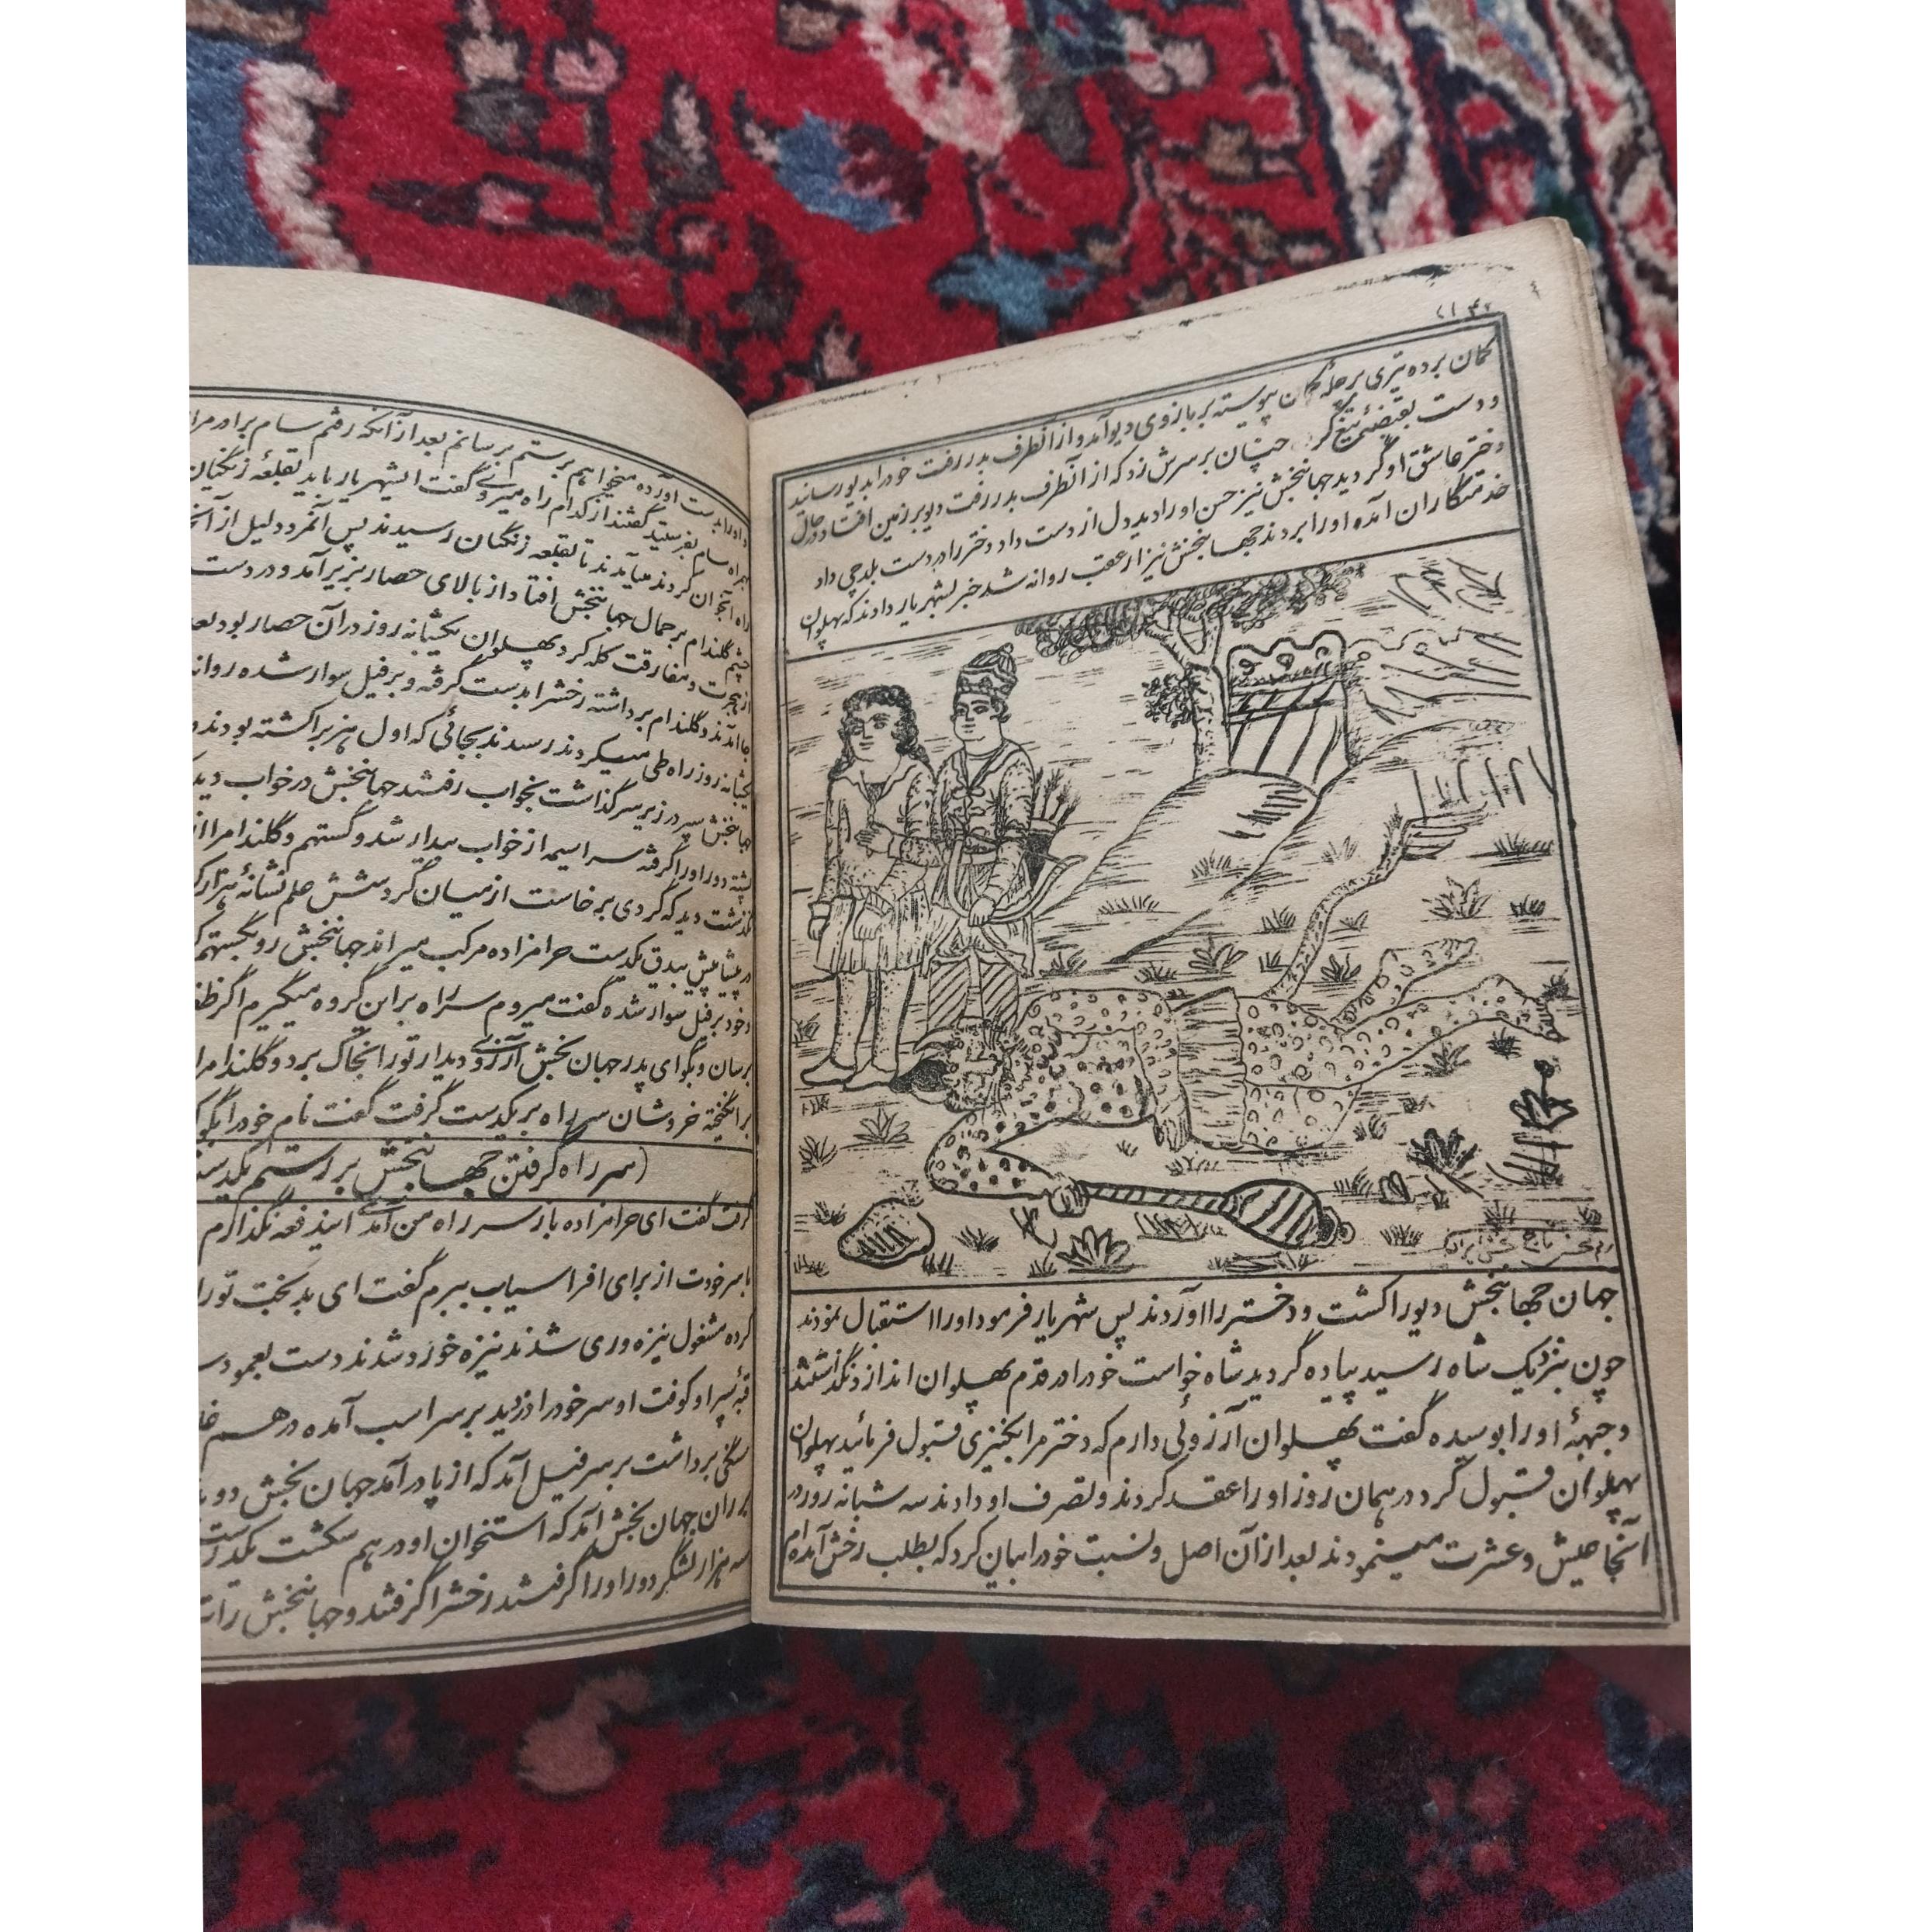 کمان برده تیری بر چلهٔ کمان پیوسته بر بازوی دیو آمد و از آنطرف بدر رفت خود را بدیو رسانید
و دست بقبضهٔ تیغ کرد چنان بر سرش زد که از آنطرف بدر رفت دیو بر زمین افتاد در حال
دختر عاشق او گردید جهانبخش نیز حسن او را دید دل از دست داد دختر را در دست بلدچی داد
خدمتکاران آمده او را بردند جهانبخش نیز از عقب روانه شد خبر بشهریار دادند که پهلوان
جهان جهانبخش دیو را کشت و دختر را آوردند پس شهریار فرمود او را استقبال نمودند
چون بنزدیک شاه رسید پیاده گردید شاه خواست خود را در قدم پهلوان اندازد نگذاشتند
و جبههٔ او را بوسیده گفت پهلوان آرزوئی دارم که دختر مرا بکنیزی قبول فرمائید پهلوان
پهلوان قبول کرد در همان روز او را عقد کردند و تصرف او دادند سه شبانه روز در
آنجا عیش و عشرت مینمودند بعد از آن اصل و نسبت خود را بیان کرد که بطلب رخش آمده‌ام
و او را بدست آورده میخواهم برستم برسانم بعد از آنکه رفتم سام برادر مرا
همراه سام بفرستید گفتند از کدام راه میروی گفت ایشهریار باید بقلعهٔ زنگیان
راه آنجوان کردند میآمدند تا بقلعه زنگیان رسیدند پس آنمرد دلیل از
چشم گلندام بر جمال جهانبخش افتاد از بالای حصار بزیر آمد و در دست
از هجرت و مفارقت گله کرد پهلوان یکشبانه روز در آن حصار بود
جا آمدند و گلندام برداشته رخشرا بدست گرفته و بر فیل سوار شده
یکشبانه روز راه طی میکردند رسیدند بجائی که اول هزبر را کشته بودند
جهانبخش سپر در زیر سر گذاشت بخواب رفتند جهانبخش در خواب
کشته دور او را گرفته سراسیمه از خواب بیدار شد و گستهم و گلندام را
گذشت دید که گردی برخاست از میان گرد شش علم نشانهٔ
در پیشاپیش بیدق یکدست حرامزاده مرکب میراند جهانبخش رو بگستهم
و خود بر فیل سوار شده گفت میروم سر راه بر این گروه میگیرم اگر
برسان و بگو ای پدر جهان بخش آرزوی دیدار تو را بخاک برد و گلندام
برانگیخته خروشان سر راه بر یکدست گرفت گفت نام خود را
(سر راه گرفتن جهانبخش بر رستم
گرفت گفت ای حرامزاده باز سر راه من آمدی ایندفعه نگذارم
با سر خودت از برای افراسیاب ببرم گفت ای بدبخت تو را
کرده مشغول نیزه‌وری شدند نیزه خورد شدند دست بعمود
قبهٔ سپر او کوفت او سر خود را دزدید بر سر اسب آمده در هم
سنگی برداشت بر سر فیل آمد که از پا در آمد جهان بخش
بر ران جهان بخش آمد که استخوان او در هم شکست
سه هزار لشگر دور او را گرفتند رخشرا گرفتند و جهانبخش